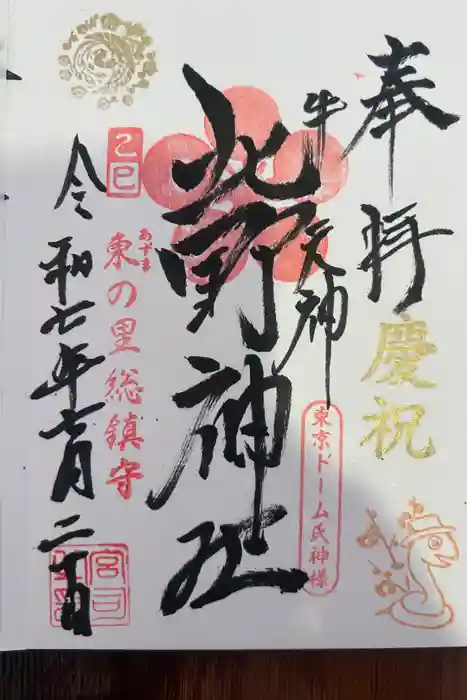 奉拝
慶祝
牛天神
東京ドーム氏神様
北野神社
乙巳
あずま
東の里総鎮守
令和七年七月二十日
宮司